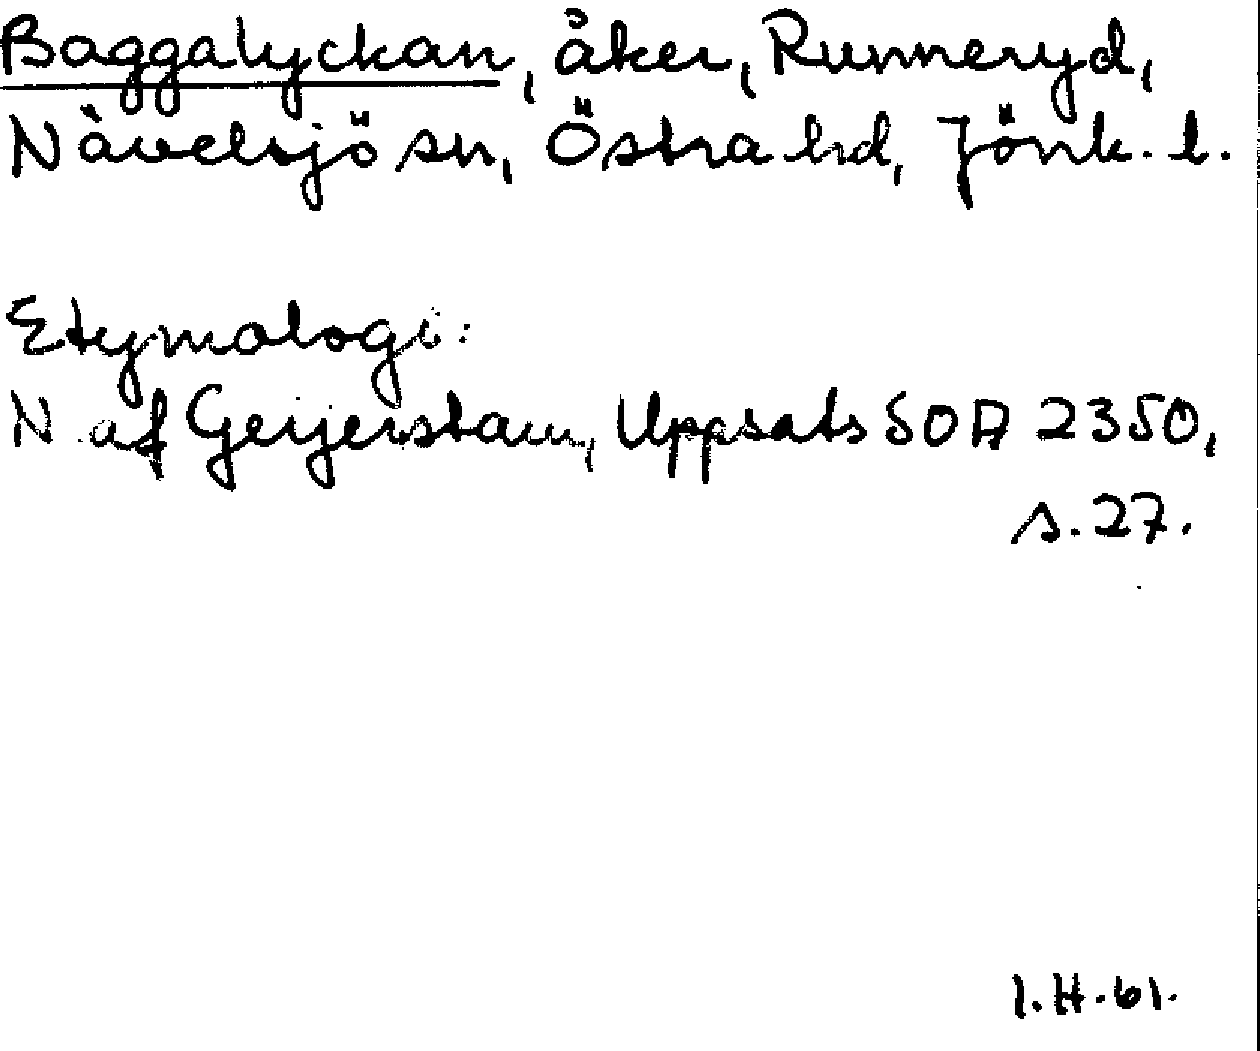 Baggalyckan, åker, Runneryd,
Nävelsjö sn, Östra hd, Jönk. l.
Etymologi:
N af Geijerstam, Uppsats SOA 2350,
s. 27.
I. H. 61.